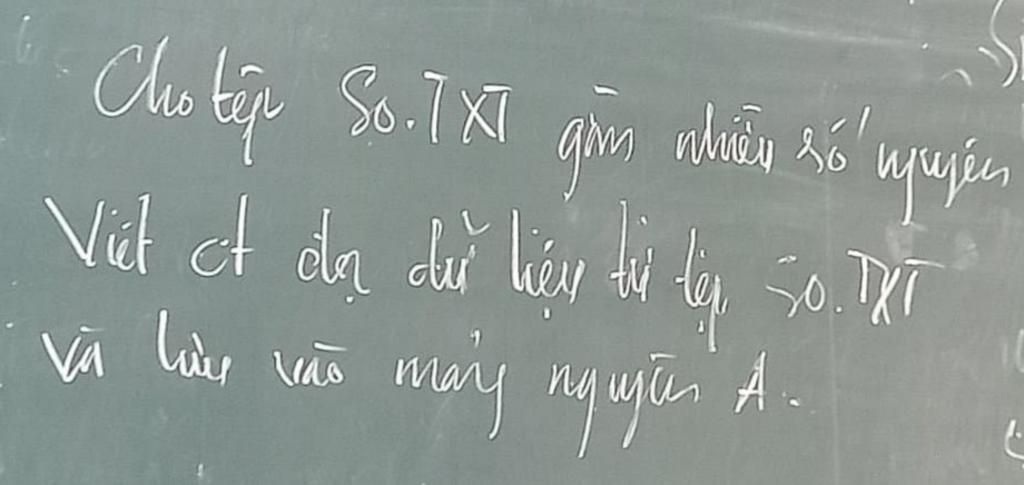 Cho tệp So.TXT gồm nhiều số nguyên
Viết ct đọc dữ liệu từ tệp So.TXT
và lưu vào mảng nguyên A.